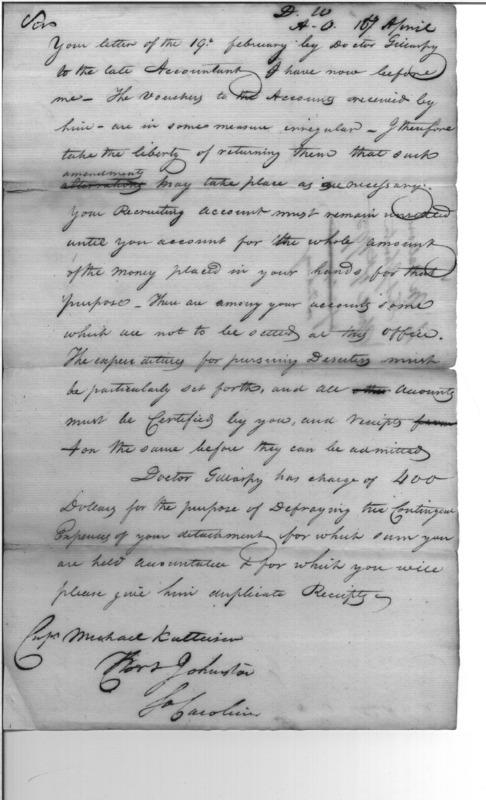 Sir
D. W
A. O. 16th April
Your letter of the 19th february by Doctor Gillaspy
to the late Accountant I have now before
me - The Vouchers to the Accounts received by
him - are in some measure irregular - I therefore
take the liberty of returning them that such
amendments
alterations may take place as are necessary.
Your Recruiting account must remain unsettled
until you account for the whole amount
of the money placed in your hands for that
purpose - There are among your accounts some
which are not to be settled at this office.
The expenditures for pursuing Deserters must
be particularly set forth, and all other Accounts
must be Certified by you, and receipts
on the same before they can be admitted
Doctor Gillaspy has charge of 400
Dollars for the purpose of Defraying the Contingent
Expences of your detachment for which sum you
are held accountable & for which you will
please give him duplicate Receipts
Capt Michael Kalteisen
Fort Johnston
So Carolina